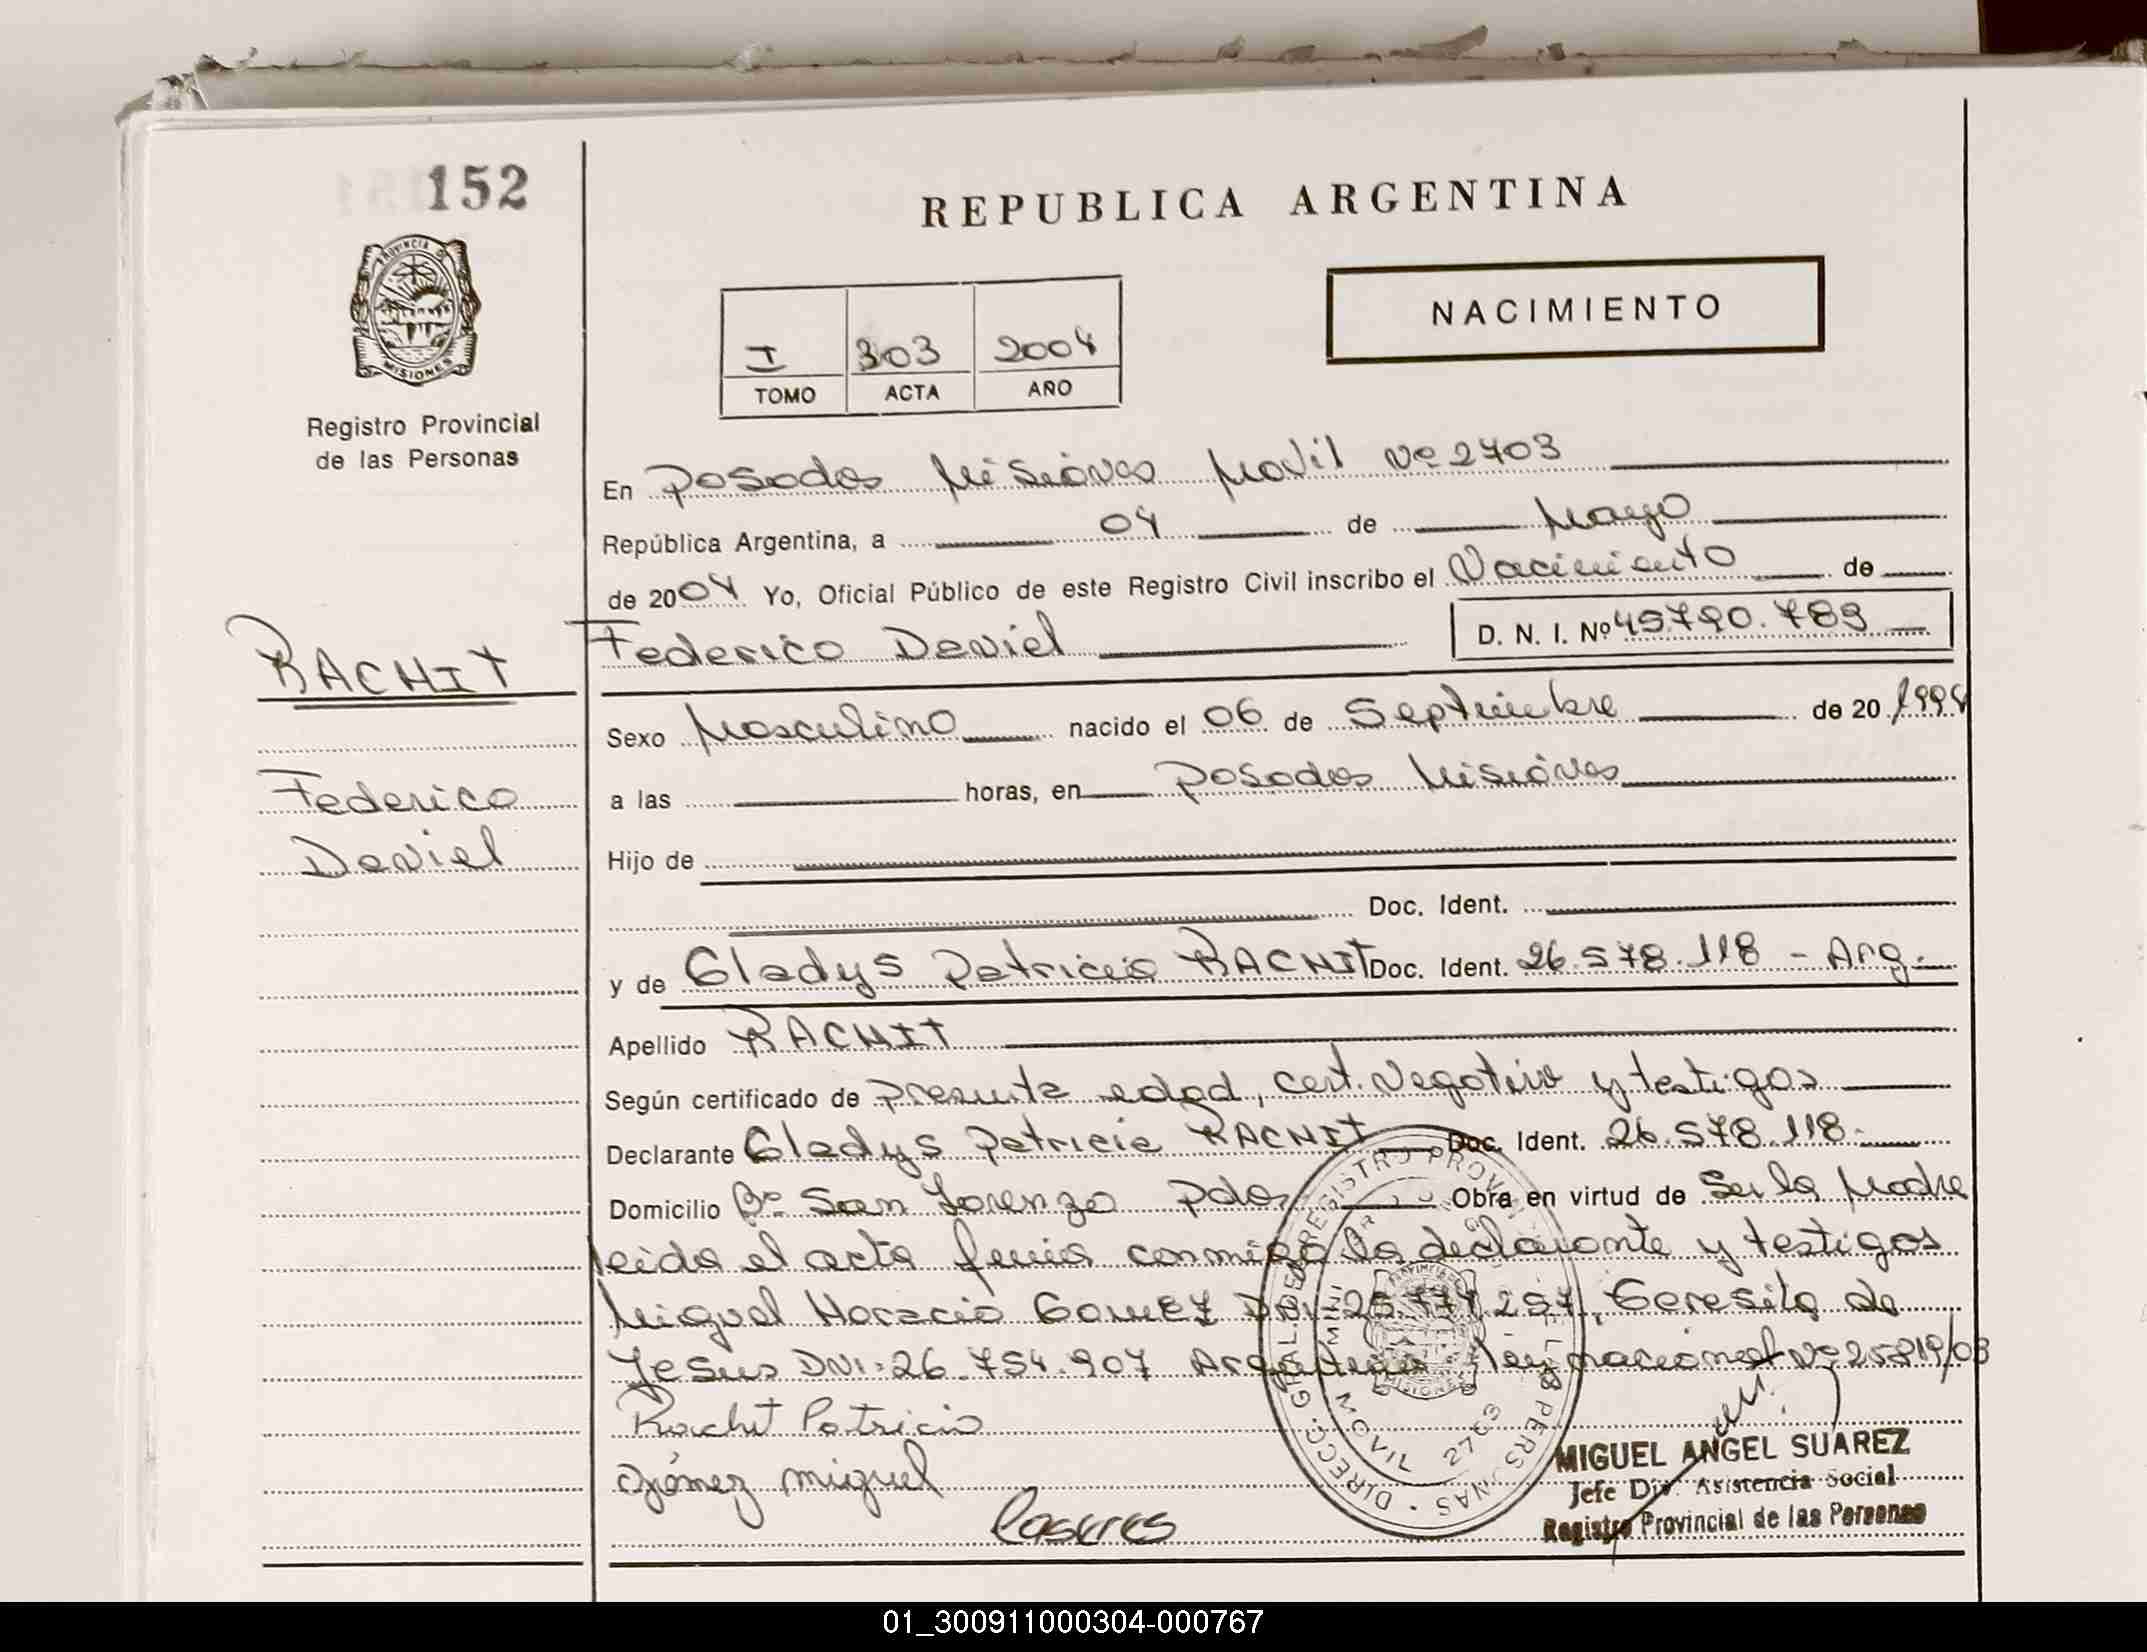 152
PROVINCIA DE
MISIONES
Registro Provincial
de las Personas
RACHIT
Federico
Daniel
REPUBLICA ARGENTINA
NACIMIENTO
I 303 2004
TOMO ACTA AÑO
En Posadas Misiones Movil Nº 2703
República Argentina, a 04 de Mayo
de 2004 Yo, Oficial Público de este Registro Civil inscribo el Nacimiento de
Federico Daniel D. N. I. Nº 45.790.789
Sexo Masculino nacido el 06 de Septiembre de 20 1998
a las horas, en Posadas Misiones
Hijo de
Doc. Ident.
y de Gladys Patricia RACHIT Doc. Ident. 26.578.118 - Arg.
Apellido RACHIT
Según certificado de presunta edad, cert. Negativo y testigos
Declarante Gladys Patricia RACHIT Doc. Ident. 26.578.118-
Domicilio Bº San Lorenzo Pdas Obra en virtud de Ser la Madre
leida el acta firma conmigo la declarante y testigos
Miguel Horacio GOMEZ DNI 25.774.257, Teresita de
Jesus DNI: 26.754.907 Argentina ley nacional Nº 25819/03
Rachit Patricia
Gómez miguel
DIRECC. GRAL. DE REGISTRO PROV. DE L. PERSONAS
MOVIL 2703
MISIONES
MIGUEL ANGEL SUAREZ
Jefe Div. Asistencia Social
Registro Provincial de las Personas
01_300911000304-000767